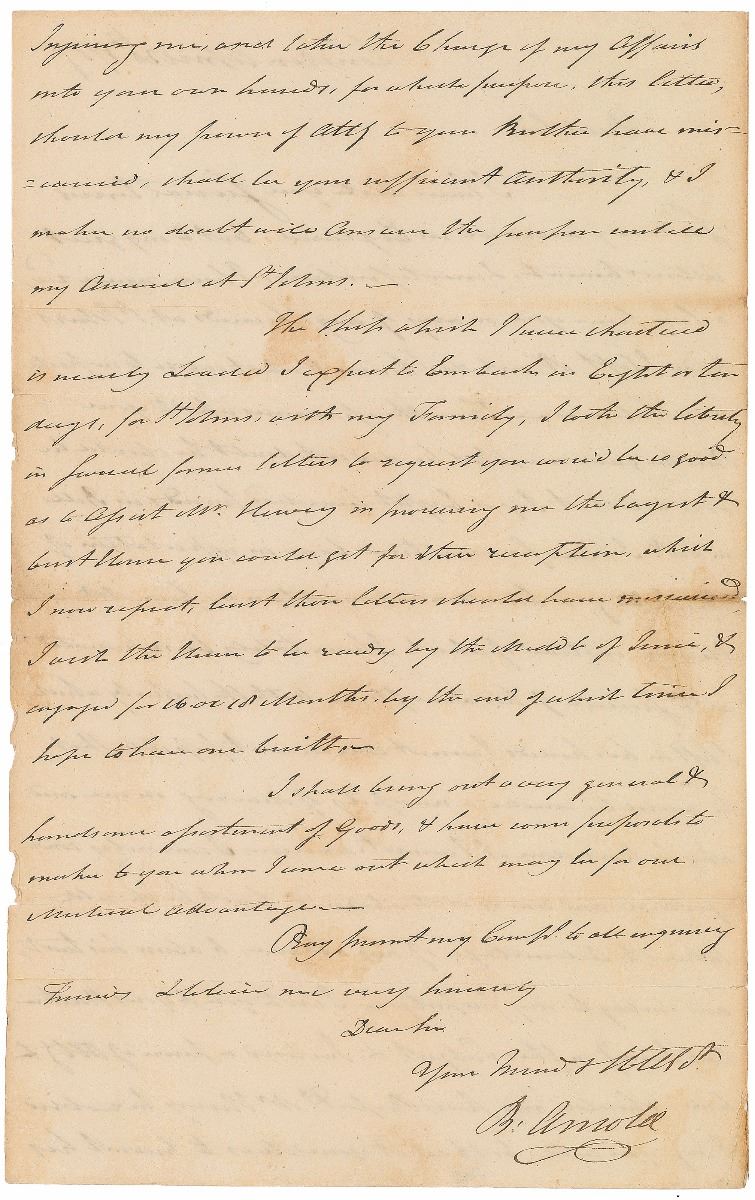 Injuring me, and take the Charge of my Affairs
into your own hands, for which purpose, this letter,
should my power of Atty to your Brother have mis=
=carried, shall be your sufficient Authority, & I
make no doubt will Answer the purpose untill
my Arrival at St Johns.—
The Ship which I have chartered
is nearly Loaded I expect to Embark in Eight or ten
days, for St Johns, with my Family, I took the liberty
in former letters to request you would be so good
as to Assist Mr. in procuring me the largest &
best House you could get for their reception, which
I now repeat, least those letters should have miscarried
I wish the House to be ready by the Middle of June, &
engaged for 16 or 18 Months. by the end of which time I
hope to have one built.—
I shall bring out a very general &
handsome assortment of Goods, & have some proposals to
make to you when I come out which may be for our
Mutual Advantage.—
Pray present my Compts. to all enquiring
Friends & believe me very sincerely
Dear Sir
Your Friend & Hble St
B: Arnold